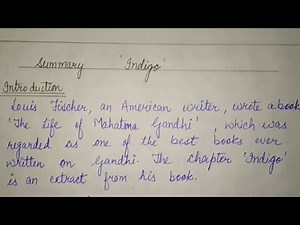 Summary 'Indigo'
Introduction
Louis Fischer, an American writer, wrote a book
'The Life of Mahatma Gandhi', which was
regarded as one of the best books ever
written on Gandhi. The chapter 'Indigo'
is an extract from his book.